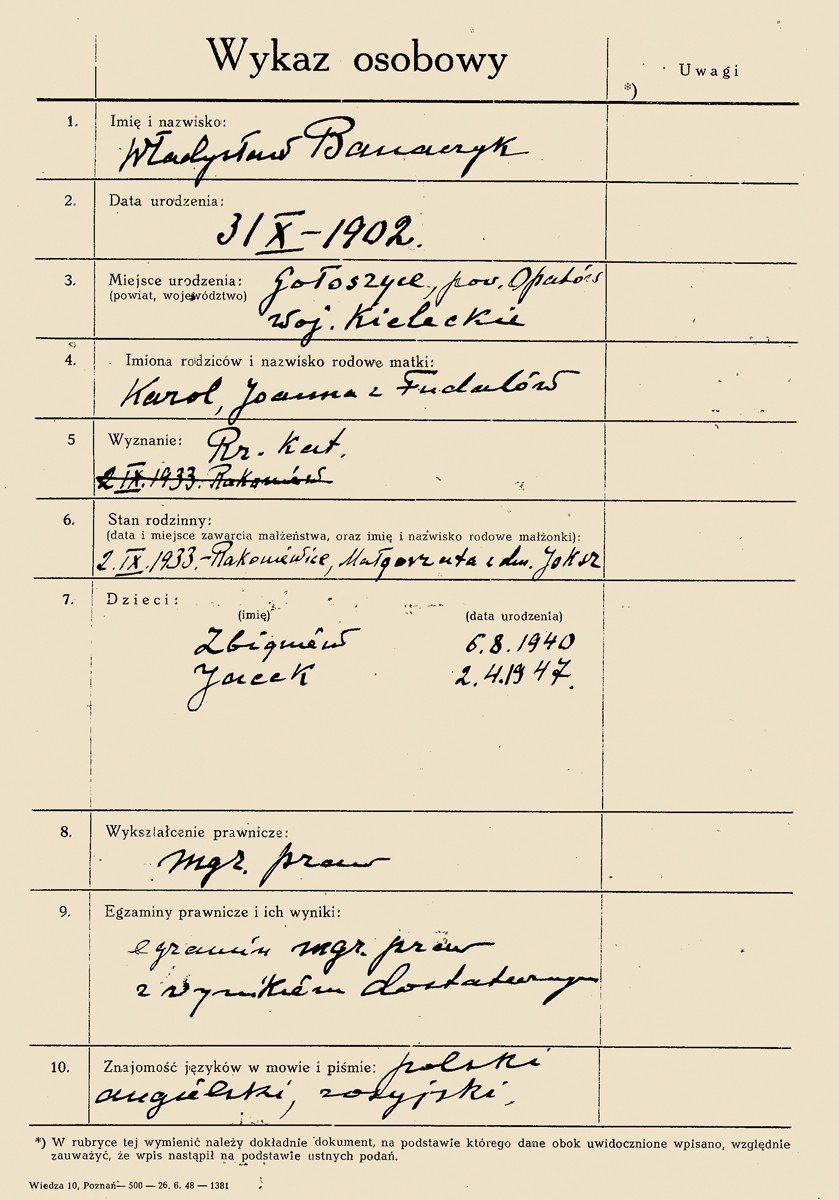 Wykaz osobowy
Uwagi
*)
1. Imię i nazwisko:
Władysław Banaczyk
2. Data urodzenia:
31 X – 1902.
3. Miejsce urodzenia: Gołoszyce, pow. Opatów
(powiat, województwo) woj. Kieleckie
4. Imiona rodziców i nazwisko rodowe matki:
Karol, Joanna z Fudalów
5 Wyznanie: Rz. Kat.
2 IX. 1933. Rakoniew
6. Stan rodzinny:
(data i miejsce zawarcia małżeństwa, oraz imię i nazwisko rodowe małżonki):
2. IX. 1933. – Rakoniewice, Małgorzata z dm. Joksz
7. Dzieci:
(imię) (data urodzenia)
Zbigniew 6.8.1940
Jacek 2.4.1947.
8. Wykształcenie prawnicze:
mgr. praw
9. Egzaminy prawnicze i ich wyniki:
egzamin mgr. praw
z wynikiem dostatecznym
10. Znajomość języków w mowie i piśmie: polski
angielski, rosyjski.
*) W rubryce tej wymienić należy dokładnie dokument, na podstawie którego dane obok uwidocznione wpisano, względnie
zauważyć, że wpis nastąpił na podstawie ustnych podań.
Wiedza 10, Poznań — 500 — 26. 6. 48 — 1381